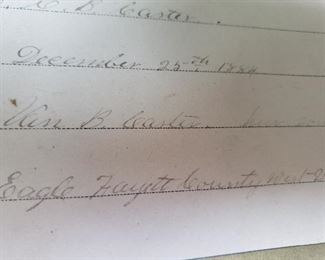 B. Carter.
December 25th 1884
Wm B. Carter
Eagle Fayett County West V